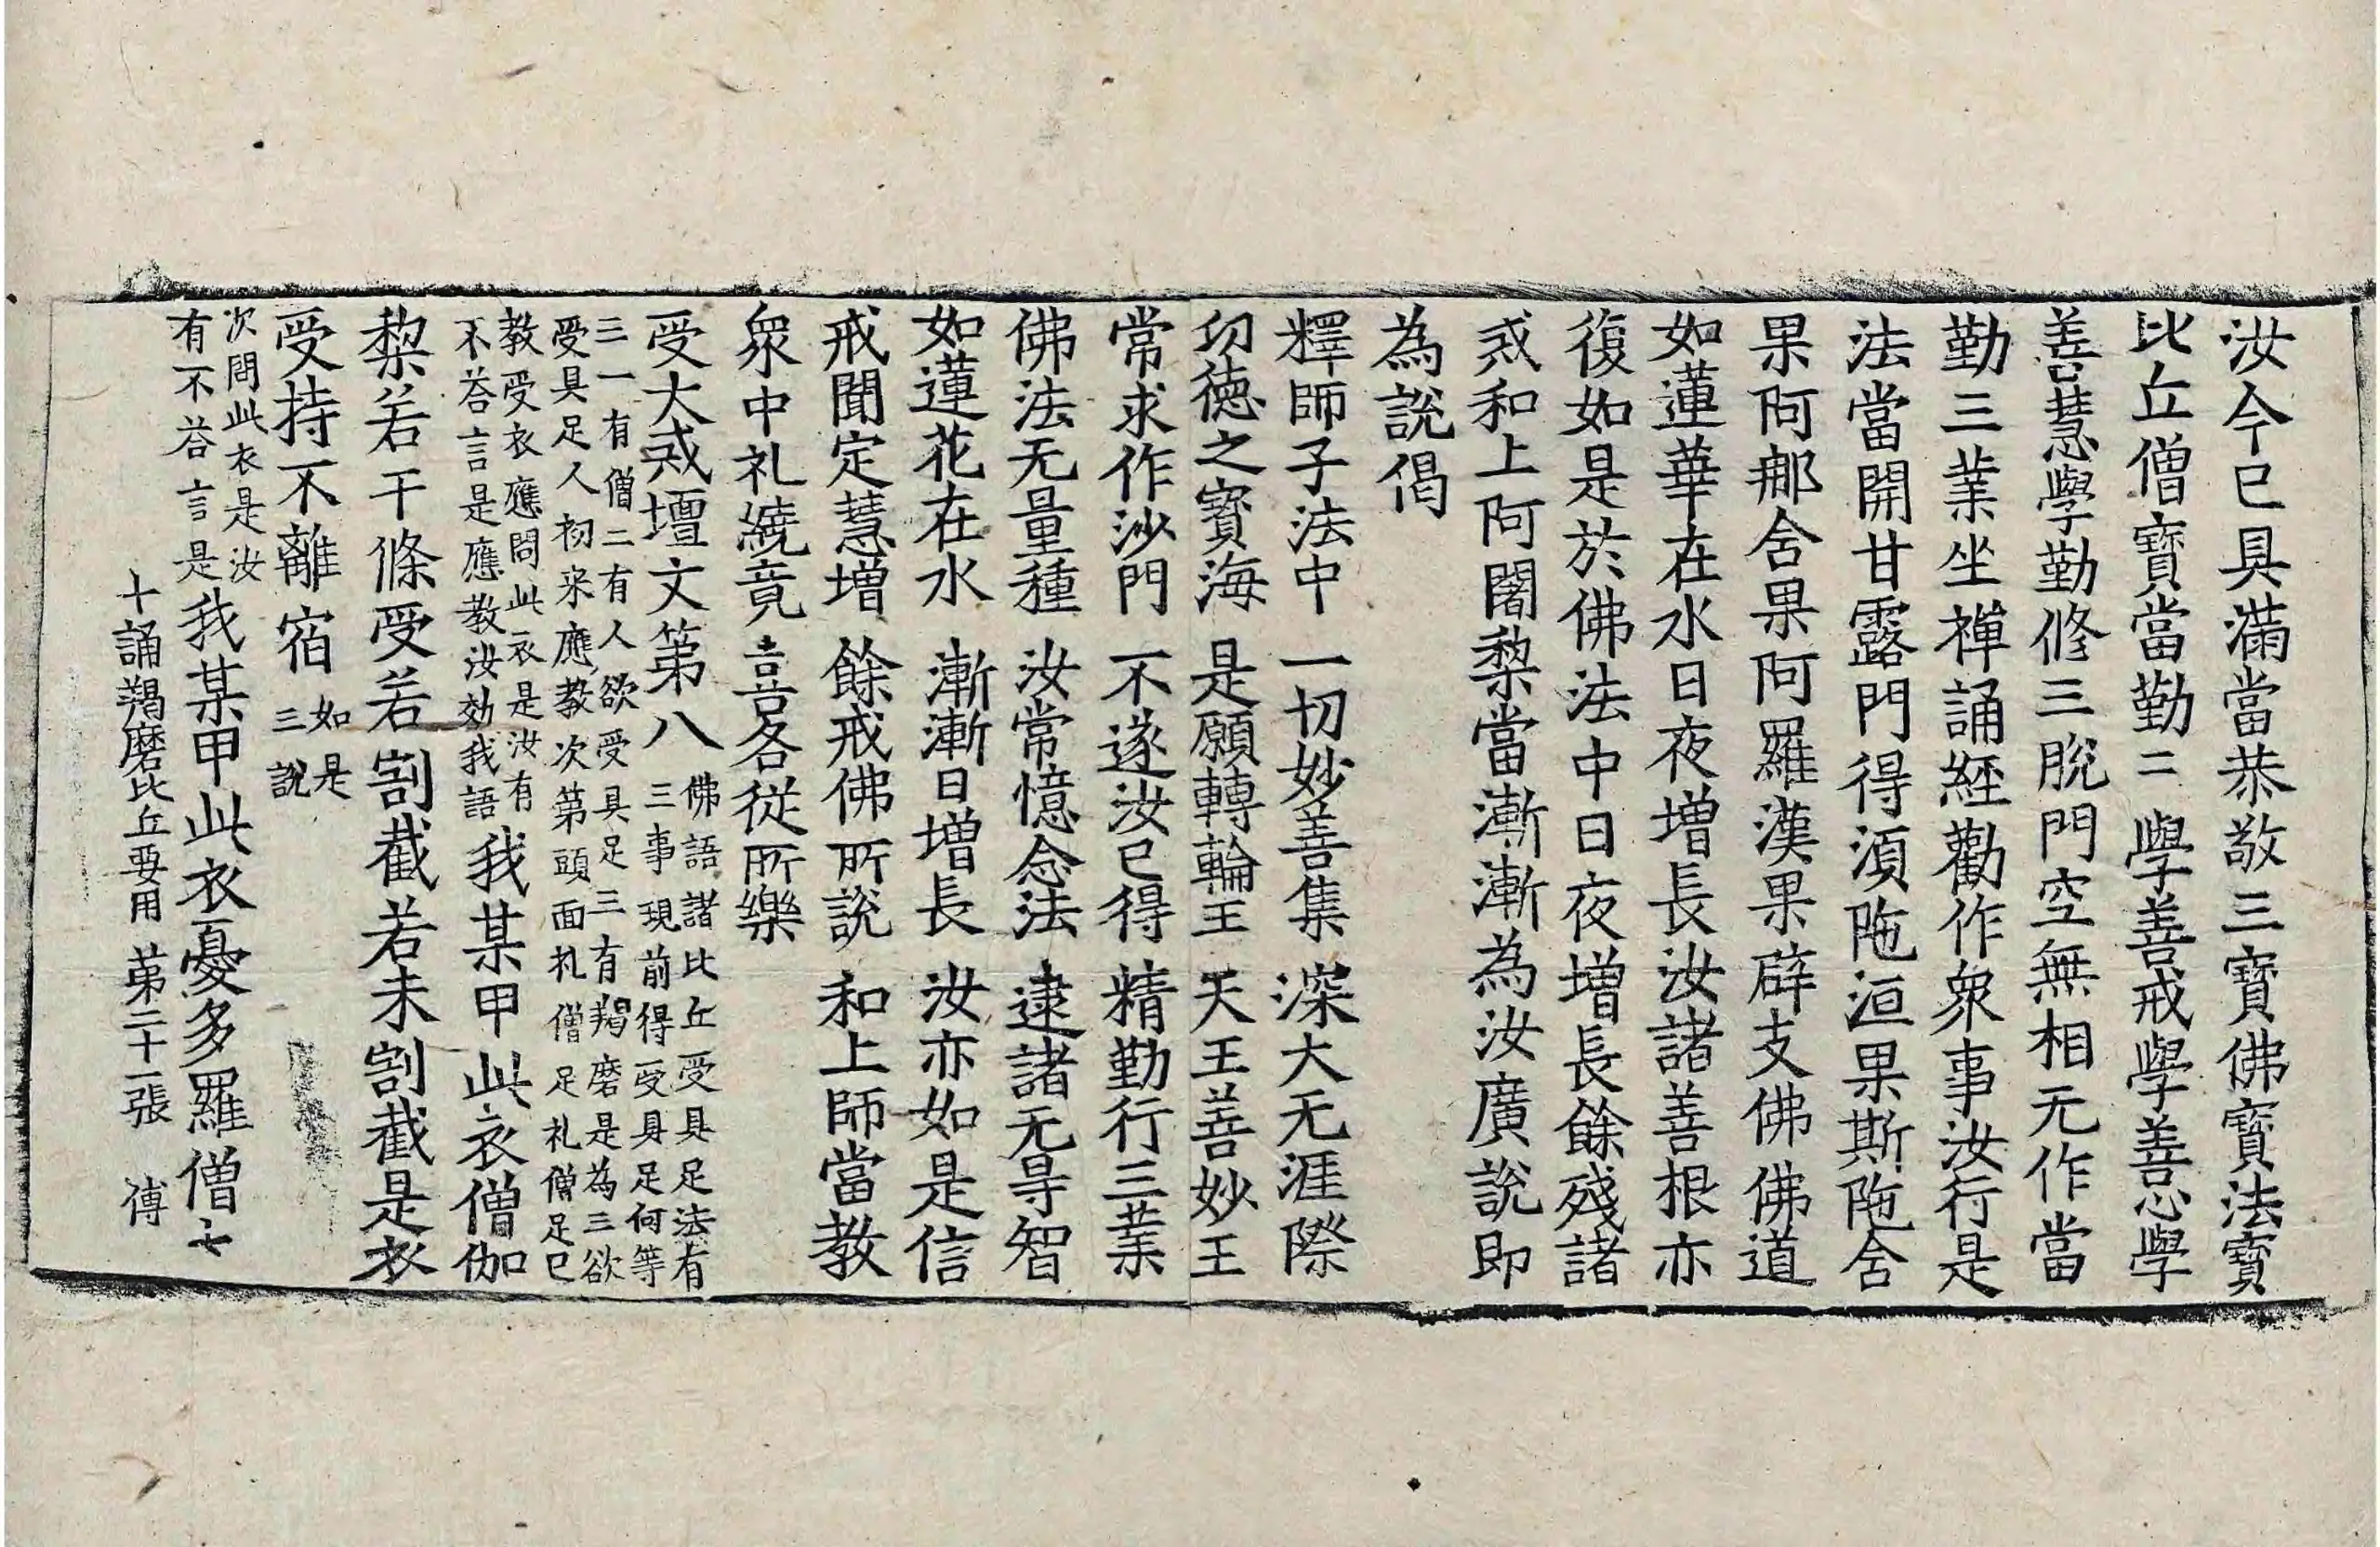 汝今已具滿當恭敬三寶佛寶法寶
比丘僧寶當勤二學善戒學善心學
善慧學勤修三脫門空無相元作當
勤三業坐禪誦經勸作衆事汝行是
法當開甘露門得湏陁洹果斯陁含
果阿郍含果阿羅漢果辟支佛佛道
如蓮華在水日夜增長汝諸善根亦
復如是於佛法中日夜增長餘殘諸
戒和上阿闍棃當漸漸為汝廣說即
為說偈
釋師子法中　一切妙善集　深大无涯際
功德之寶海　是願轉輪王　天王善妙王
常求作沙門　不遂汝已得　精勤行三業
佛法无量種　汝常憶念法　逮諸无㝵智
如蓮花在水　漸漸日增長　汝亦如是信
戒聞定慧增　餘戒佛所說　和上師當教
衆中礼繞竟　喜各從所樂
受大戒壇文第八佛語諸比丘受具足法有
三事現前得受具足何等
三一有僧二有人欲受具足三有羯磨是為三欲
受具足人初来應教次第頭面礼僧足礼僧足已
教受衣應問此衣是汝有
不荅言是應教汝効我語我某甲此衣僧伽
棃若干條受若割截若未割截是衣
受持不離宿如是
三說
次問此衣是汝
有不荅言是我某甲此衣憂多羅僧七
十誦羯磨比丘要用　第二十一張　傅